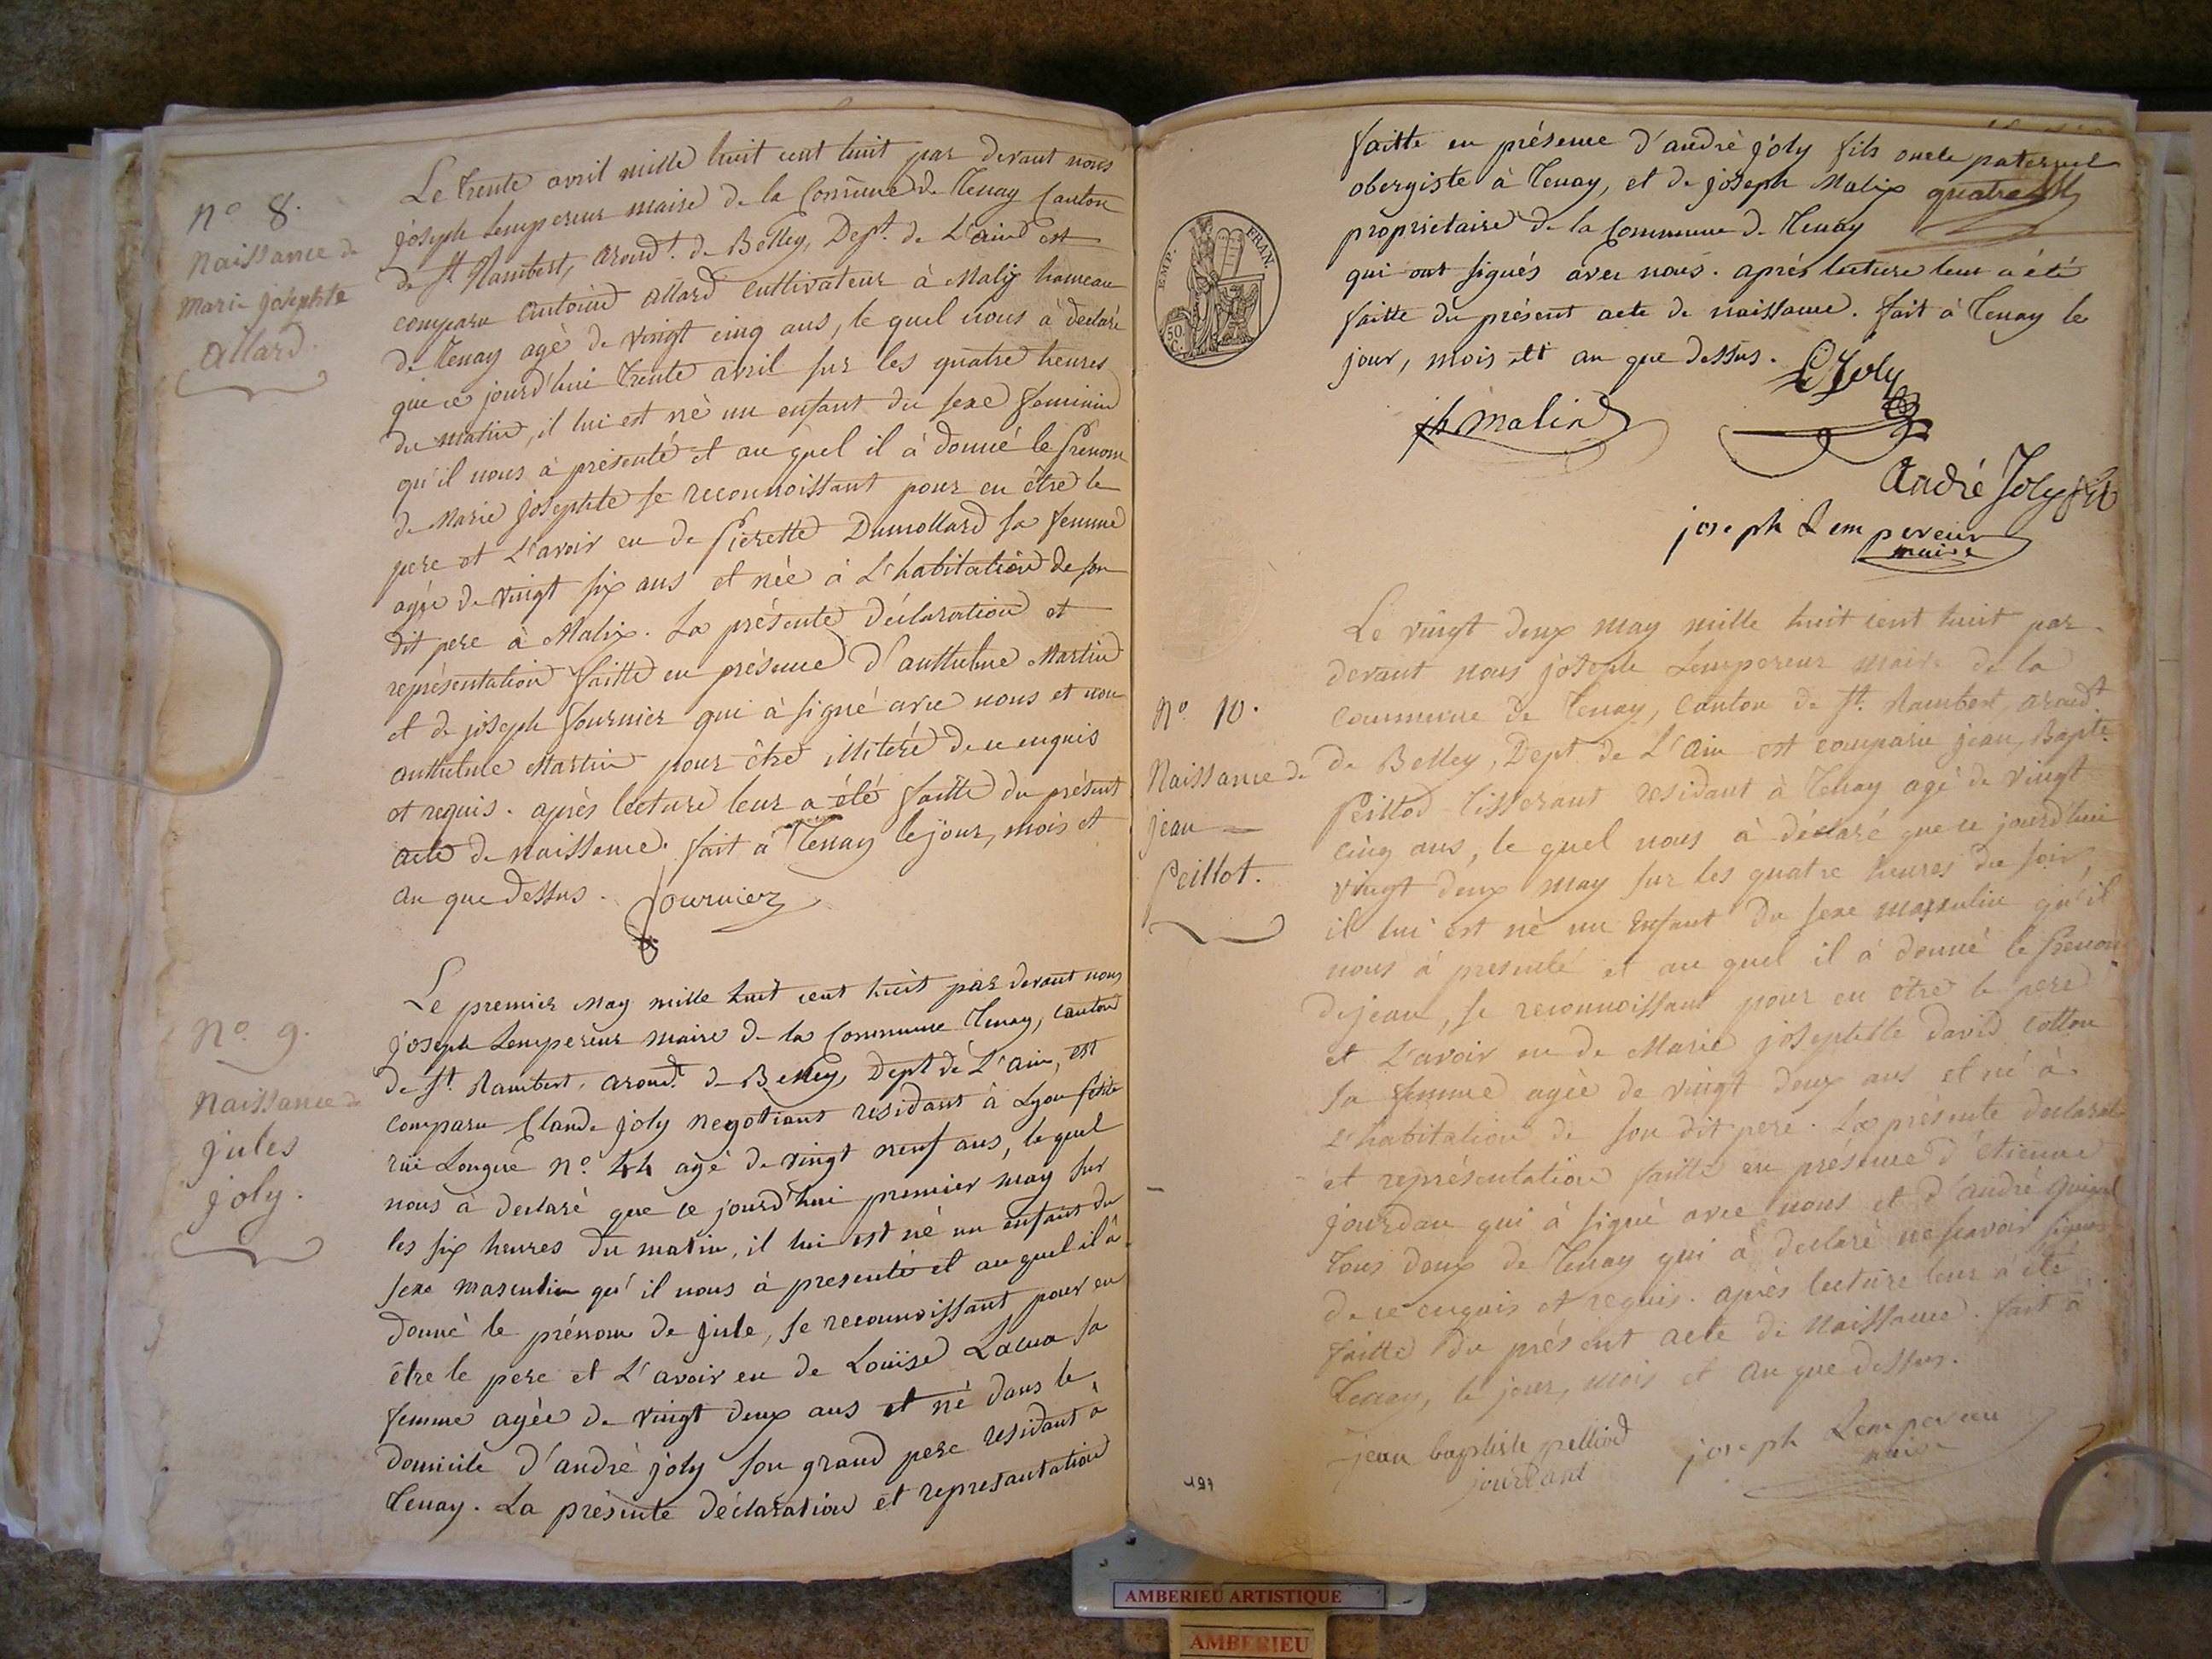 N° 8.
Naissance de
Marie josephte
allard.
Le trente avril mille huit cent huit par devant nous
joseph Lempereur maire de la Commune de Tenay Canton
de St. Rambert, arondt. de Belley, Dept. de L'ain est
comparu antoine allard cultivateur à Malix hameau
de Tenay agé de vingt cinq ans, le quel nous à declaré
que ce jourd'hui trente avril sur les quatre heures
du matin, il lui est né un enfant du sexe feminin
qu'il nous à présenté et au quel il à donné le prenom
de Marie josephte se reconnoissant pour en être le
pere et L'avoir eu de Pierette Dumollard sa femme
agée de vingt six ans et née à L'habitation de son
dit pere à Malix. La présente déclaration et
représentation faitte en présence d'anthelme Martin
et de joseph fournier qui à signé avec nous et non
anthelme Martin pour être illiteré de ce enquis
et requis. après lecture leur a été faitte du présent
acte de naissance. fait à Tenay le jour, mois et
an que dessus. fournier
N° 9.
Naissance de
jules
joly.
Le premier may mille huit cent huit par devant nous
joseph Lempereur maire de la Commune Tenay, canton
de St. Rambert, arondt. de Belley, Dept de L'ain, est
comparu Claude joly negotiant residant à Lyon petite
rüe Longue n° 44 agé de vingt neuf ans, le quel
nous à declaré que ce jourd'hui premier may sur
les six heures du matin, il lui est né un enfant du
sexe masculin qu'il nous à presenté et au quel il à
donné le prénom de jule, se reconnoissant pour en
être le pere et L'avoir eu de Louise Lacua sa
femme agée de vingt deux ans et né dans le
domicile d'andré joly son grand pere residant à
Tenay. La présente déclaration et representation
faitte en présence d'andré joly fils oncle paternel
obergiste à Tenay, et de joseph Malix
proprietaire de la Commune de Tenay
qui ont signés avec nous. après lecture leur a été
faitte du présent acte de naissance. fait à Tenay le
jour, mois et an que dessus.
EMP. FRAN.
50 C.
Joly
jh. Malin
André Joly fils
joseph Lempereur
maire
N° 10.
Naissance de
jean
Peillot.
Le vingt deux may mille huit cent huit par
devant nous joseph Lempereur maire de la
commune de Tenay, Canton de St. Rambert, arondt.
de Belley, Dept. de L'ain est comparu jean, Bapte.
Peillod tisserant residant à Tenay agé de vingt
cinq ans, le quel nous à déclaré que ce jourd'hui
vingt deux may sur les quatre heures du soir,
il lui est né un enfant du sexe masculin qu'il
nous à presenté et au quel il à donné le prenom
de jean, se reconnoissant pour en être le pere
et L'avoir eu de Marie josephtte david cotton
sa femme agée de vingt deux ans et né à
L'habitation de son dit pere. La présente declarat.
et représentation faitte en présence d'etienne
jourdan qui à signé avec nous et d'andré
tous deux de Tenay qui à declaré ne scavoir signer
de ce enquis et requis. après lecture leur a été
faitte du présent acte de naissance. fait à
Tenay, le jour, mois et an que dessus.
jean baptiste pelliod joseph Lempereur
jourdant maire
AMBERIEU ARTISTIQUE
AMBERIEU